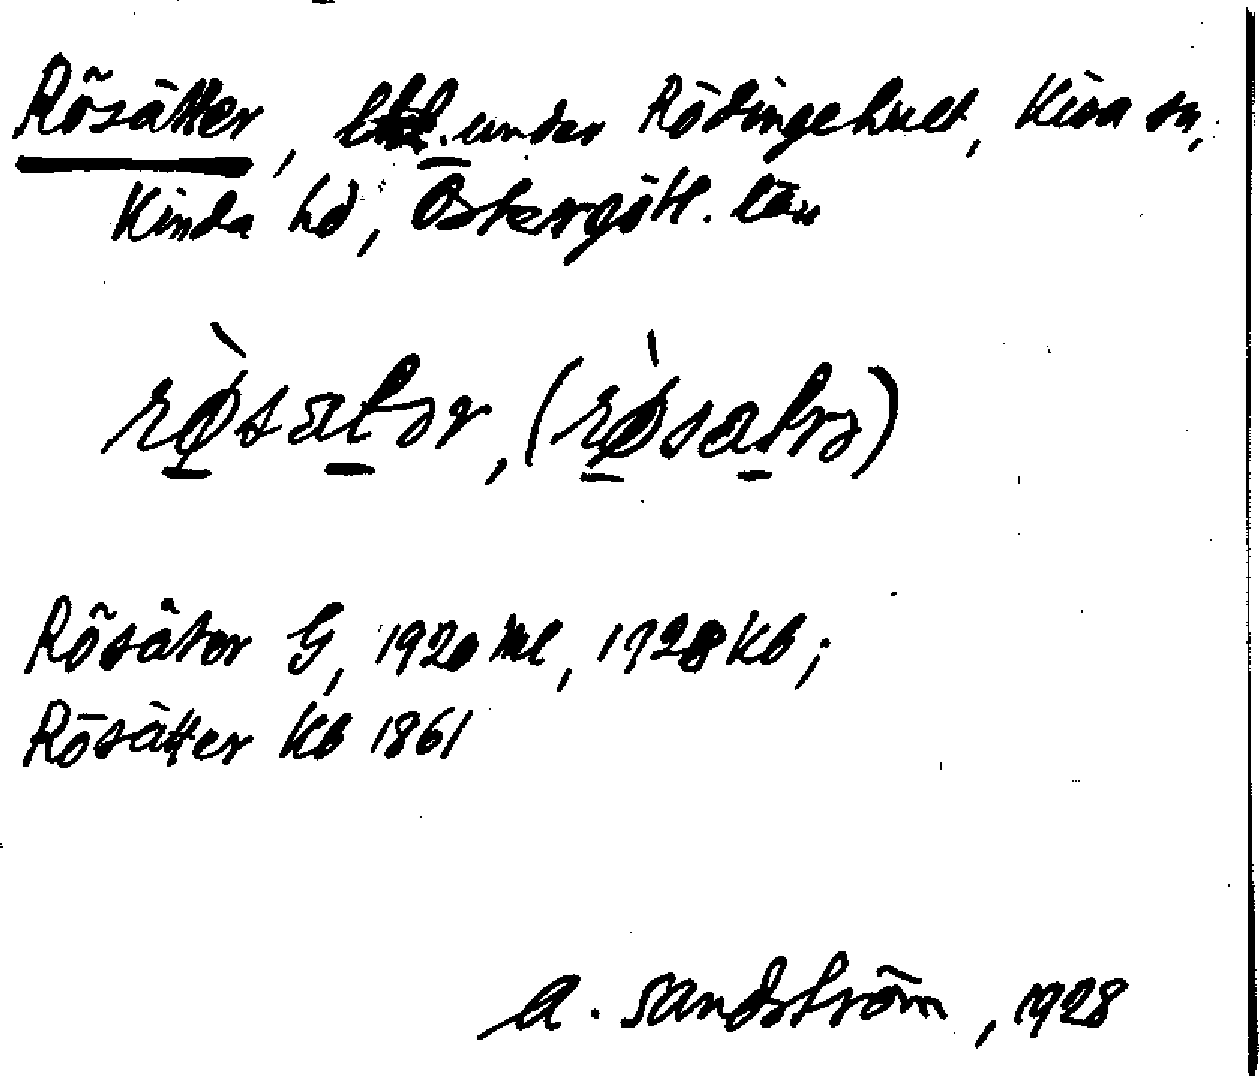 Rösätter, under Rödingehult, Kisa sn,
Kinda hd, Östergötl. län
rø̀satər, (rø̀satrə)
Rösäter G, 1920 Ml, 1928 Kb;
Rösätter Kb 1861
A. Sandström, 1928